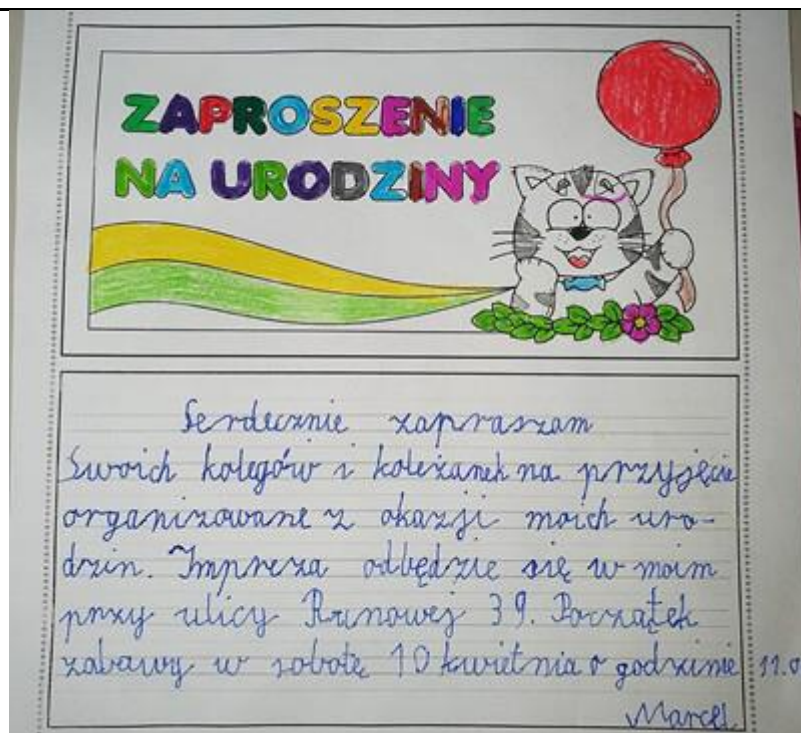 ZAPROSZENIE
NA URODZINY
Serdecznie zapraszam
Swoich kolegów i koleżanek na przyjęcie
organizowane z okazji moich uro-
dzin. Impreza odbędzie się w moim
przy ulicy Runowej 39. Początek
zabawy w sobotę 10 kwietnia o godzinie 11.0
Marcel